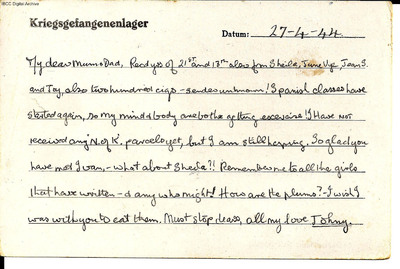 IBCC Digital Archive
Kriegsgefangenenlager
Datum: 27-4-44
My dear Mum & Dad, Recd yrs of 21st and 17th also from Sheila, June, Joan S.
and Joy, also two hundred cigs - sender unknown! Spanish classes have
started again, so my mind & body are both getting exercise! I have not
received any N.of K. parcel yet, but I am still hoping. So glad you
have met Ivan, - what about Sheila?! Remember me to all the girls
that have written - & any who might! How are the plums? - I wish I
was with you to eat them. Must stop dears, all my love Johny.